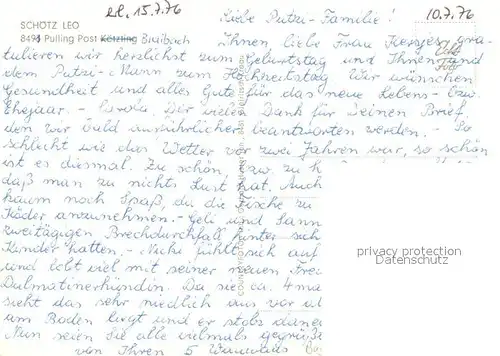 el. 15.7.76
SCHÖTZ LEO
8491 Pulling Post Kötzling Blaibach
10.7.76
Liebe Putzi-Familie!
Ihnen liebe Frau gra-
tulieren wir herzlichst zum Geburtstag und Ihnen und
dem Putzi-Mann zum Hochzeitstag. Wir wünschen
Gesundheit und alles Gute für das neue Lebens- bzw.
Ehejaar. - Dir vielen Dank für Deinen Brief
den wir bald ausführlicher beantworten werden. - So
schlecht wie das Wetter vor zwei Jahren war, so schön
ist es diesmal. Zu schön, bzw. zu h
daß man zu nichts Lust hat. Auch
kaum noch Spaß, da die Fische zu
Köder anzunehmen. - Geli und Sann
zweitägigen Brechdurchfall hinter sich
Kinder hatten. - Nicki fühlt sich auf
und tobt viel mit seiner neuen Freu
Dalmatinerhündin. Da sie ca. 4 ma
sieht das sehr niedlich aus vor al
am Boden liegt und er stolz danel
Nun seien Sie alle vielmals gegrüß
von Ihren 5
privacy protection
Datenschutz